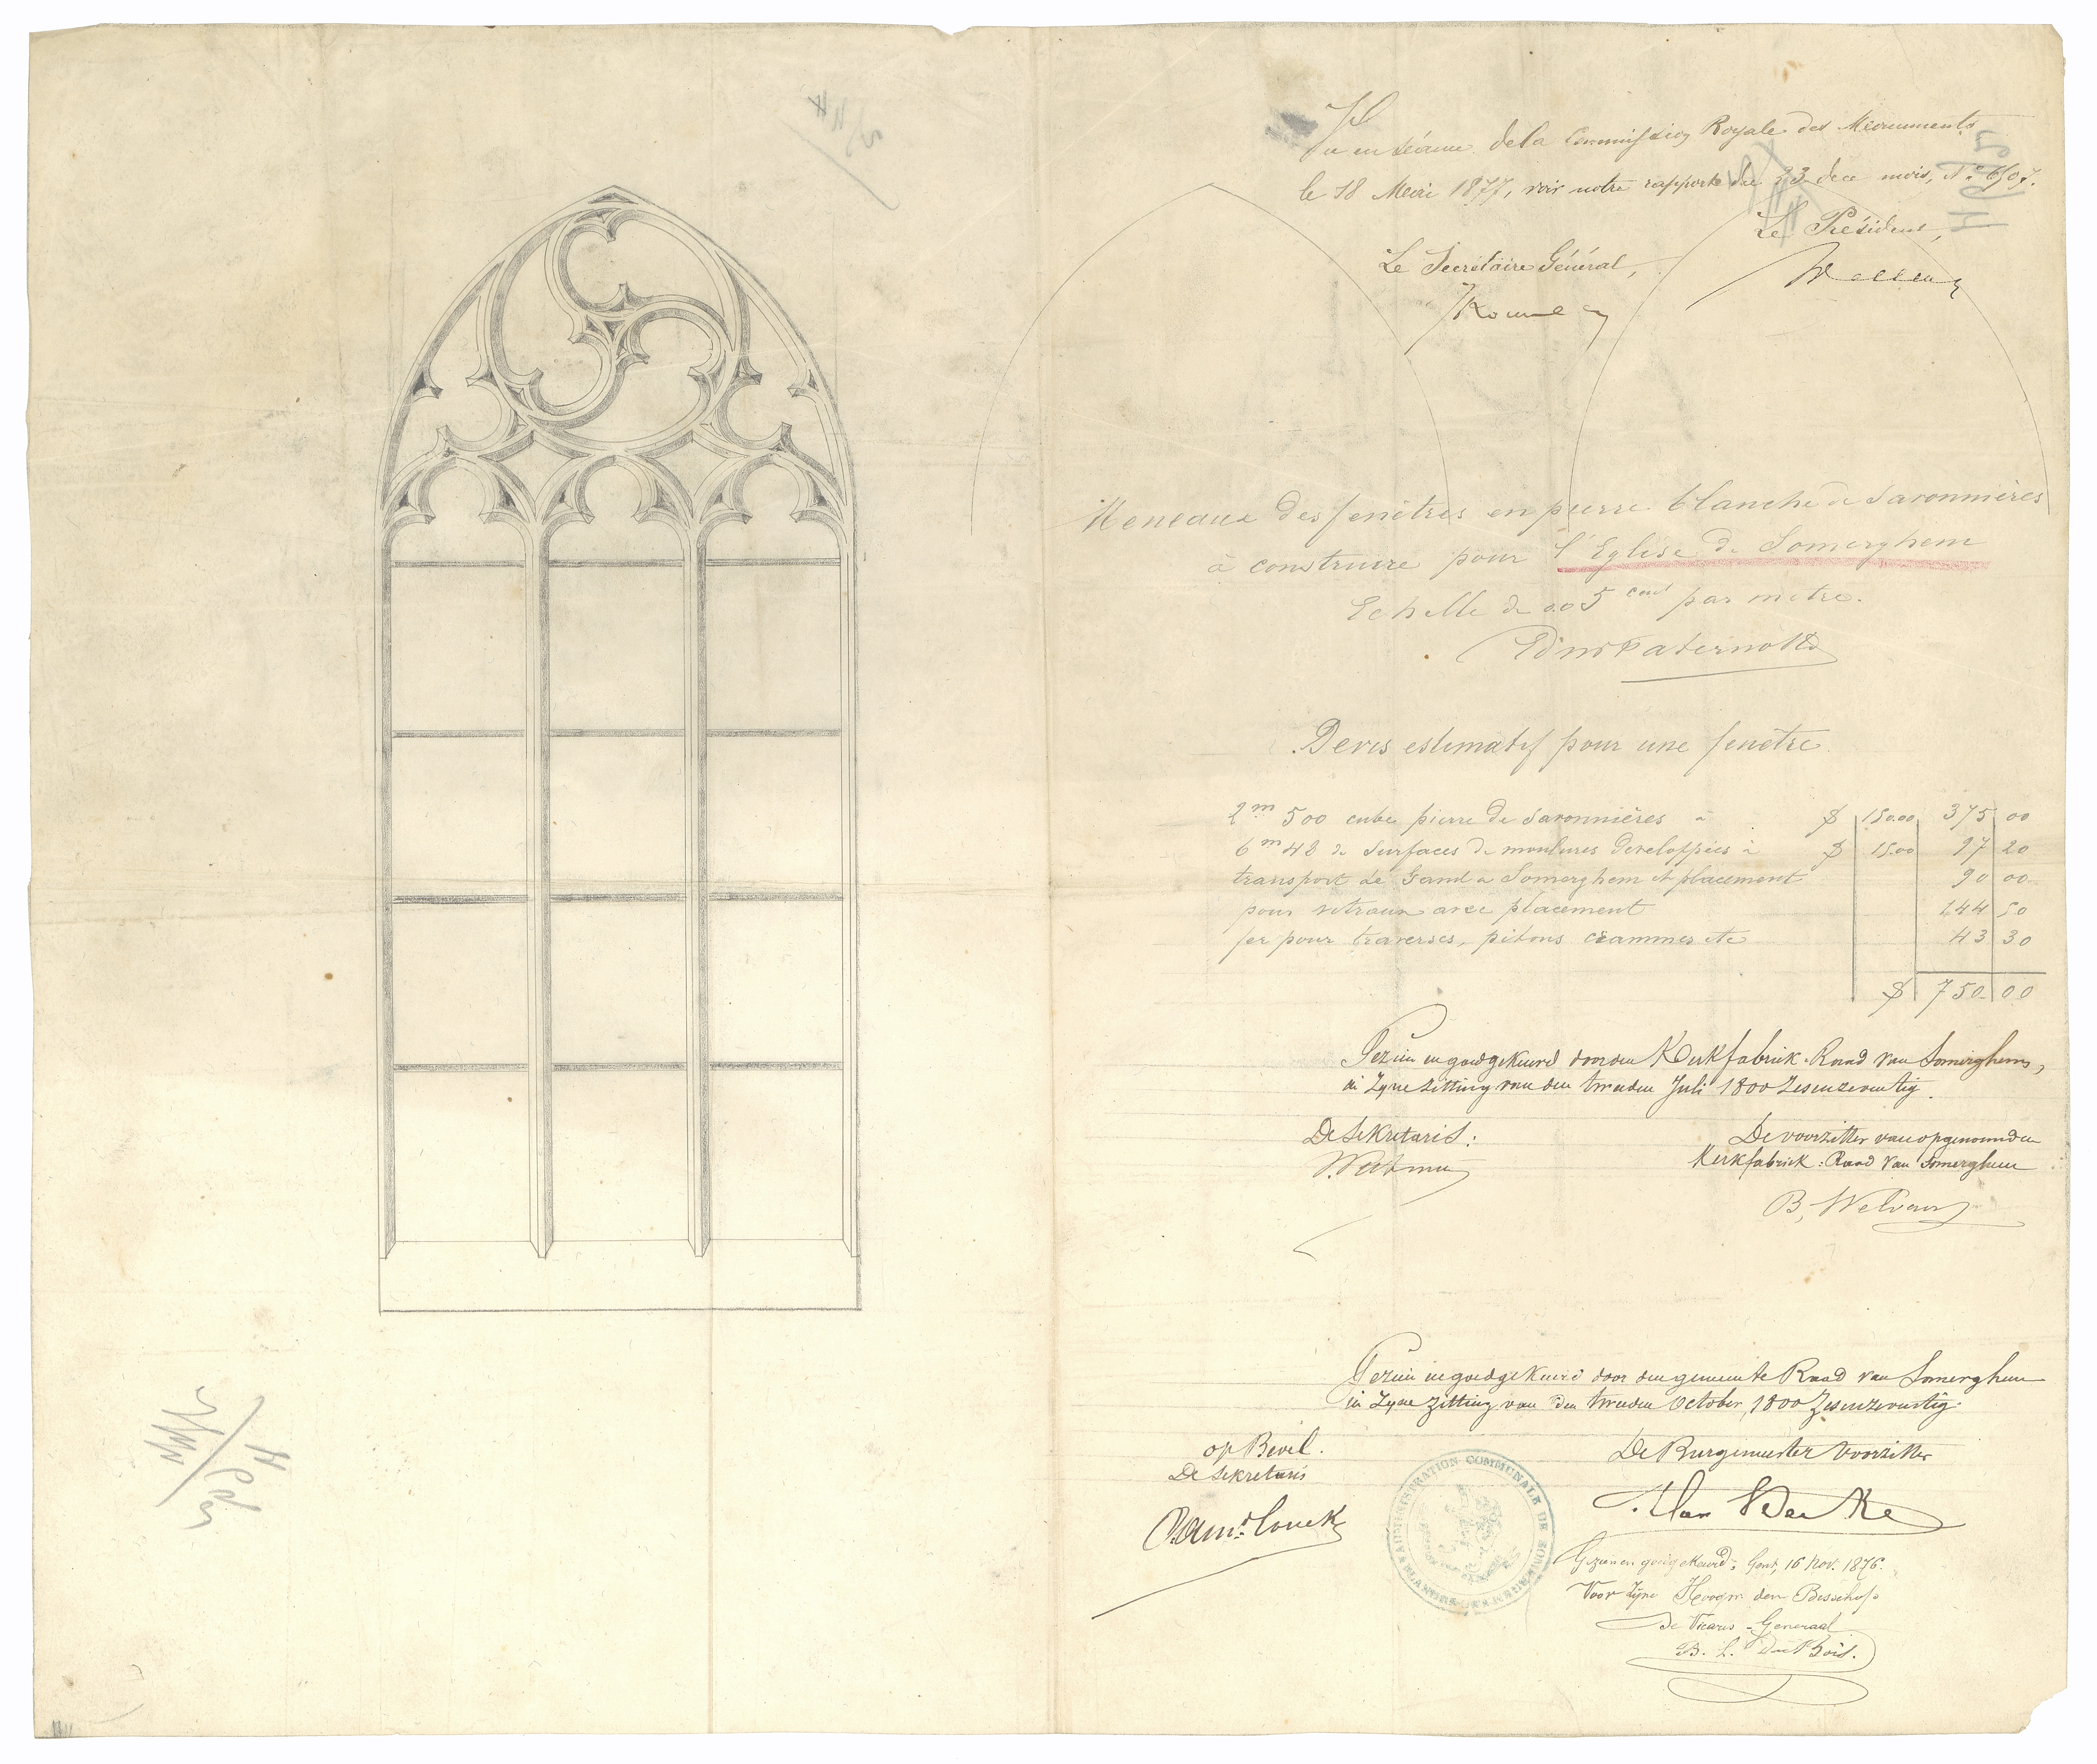 Vu en séance de la Commission Royale des Monuments
le 18 1877, voir notre rapport du 23 mois, N° 6507.
Le Président,
Le Secrétaire Général,
Meneaux des fenêtres en pierre blanche de Savonnières
à construire pour l'Eglise de Somerghem
Echelle de 0.05 cent par mètre.
Devis estimatif pour une fenêtre
2m 500 cube pierre de Savonnières à $ 150.00 375 00
6m 48 de surfaces de moulures developpées à $ 15.00 97 20
transport de Gand a Somerghem et placement 90 00
pour vitraux avec placement 144 50
fer pour traverses, pitons crammes etc 43 30
$ 750.00
Gezien en goedgekeurd door den Kerkfabriek-Raad van Somerghem,
in Zyne zitting van den tweeden Juli 1800 Zesenzeventig.
De Sekretaris:
De voorzitter van opgenoemden
Kerkfabriek-Raad van Somerghem
Gezien en goedgekeurd door den gemeente Raad van Somerghem
in Zyne Zitting van den tweeden October, 1800 Zesenzeventig.
op Bevel.
De Sekretaris
De Burgemeester Voorzitter
ADMINISTRATION COMMUNALE DE SOMERGHEM
Gezien en goedgekeurd, Gent, 16 Nov. 1876.
Voor Zijne Hoogw den Bisschop
De Vicaris-Generaal
B. L. Du Bois.